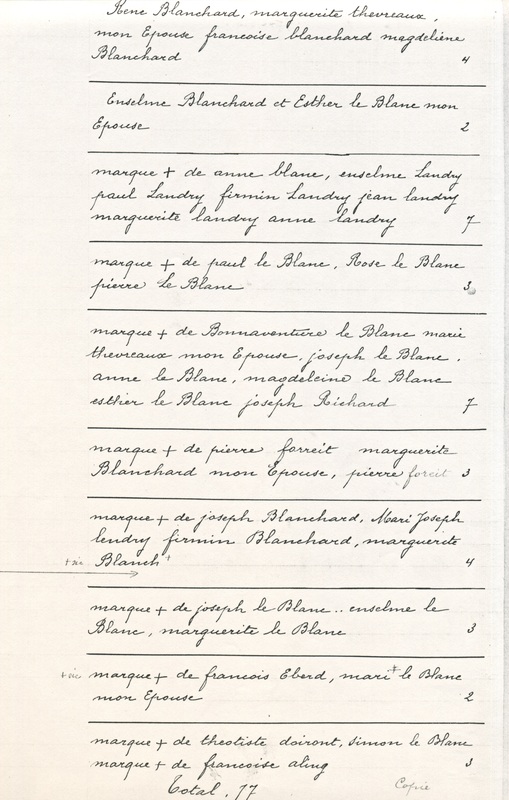 Rene Blanchard, marguerite thevreaux,
mon Epouse francoise blanchard magdeliene
Blanchard 4
Enselme Blanchard et Esther le Blanc mon
Epouse 2
marque + de anne blanc, enselme Landry
paul Landry firmin Landry jean landry
marguerite landry anne landry 7
marque + de paul le Blanc, Rose le Blanc
pierre Le Blanc 3
marque + de Bonnaventure le Blanc marie
thevreaux mon Epouse, joseph le Blanc.
anne le Blanc, magdeleine le Blanc
esther le Blanc joseph Richard 7
marque + de pierre forreit marguerite
Blanchard mon Epouse, pierre foreit 3
marque + de joseph Blanchard, Mari Joseph
lendry firmin Blanchard, marguerite
+ sic Blanch + 4
marque + de joseph le Blanc.. enselme le
Blanc, marguerite le Blanc 3
+ sic marque + de francois Eberd, mari + le Blanc
mon Epouse 2
marque + de theotiste doiront, simon le Blanc
marque + de francoise aling 3
Total. 77
Copie